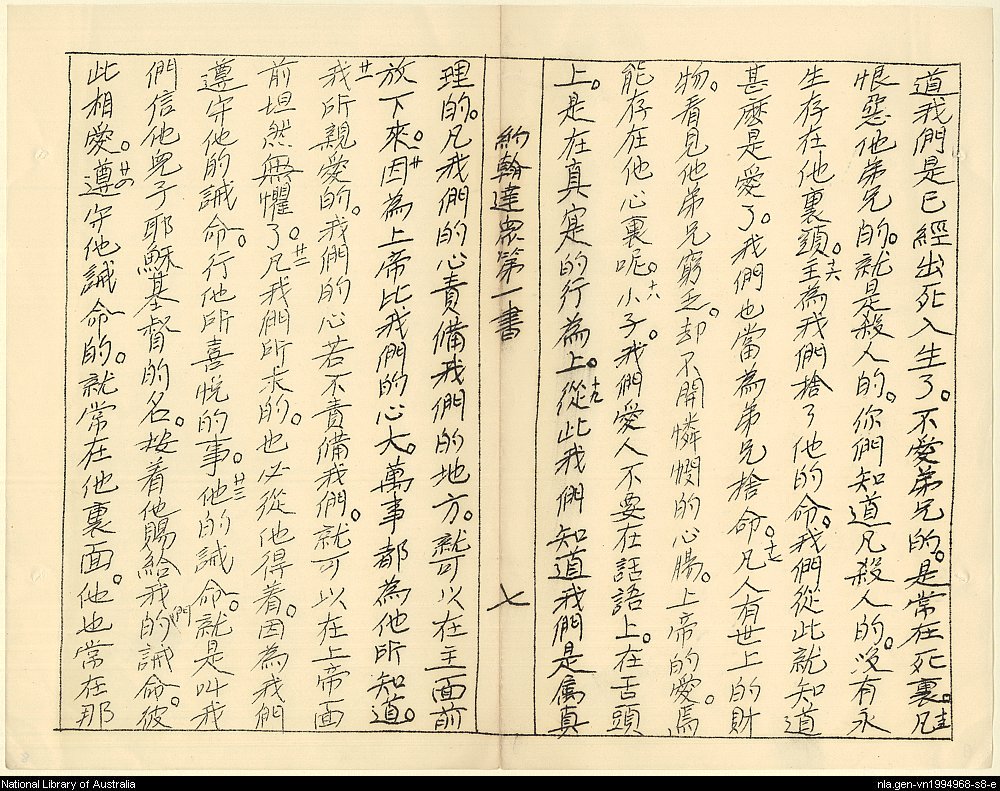 道我們是已經出死入生了。不愛弟兄的。是常在死裏。十五凡
恨惡他弟兄的。就是殺人的。你們知道凡殺人的。沒有永
生存在他裏頭。十六主為我們捨了他的命。我們從此就知道
甚麽是愛了。我們也當為弟兄捨命。十七凡人有世上的財
物。看見他弟兄窮乏。却不開憐憫的心膓。上帝的愛。焉
能存在他心裏呢。十八小子。我們愛人不要在話語上。在舌頭
上。是在真寔的行為上。十九從此我們知道我們是属真
約翰達眾第一書 七
理的。凡我們的心責備我們的地方。就可以在主面前
放下來。廿因為上帝比我們的心大。萬事都為他所知道。
廿一我所親愛的。我們的心若不責備我們。就可以在上帝面
前坦然無懼了。廿二凡我們所求的。也必從他得着。因為我們
遵守他的誡命。行他所喜悅的事。廿三他的誡命。就是叫我
們信他兒子耶穌基督的名。按着他賜給我們的誡命。彼
此相愛。廿四遵守他誡命的。就常在他裏面。他也常在那
National Library of Australia
nla.gen-vn1994968-s8-e